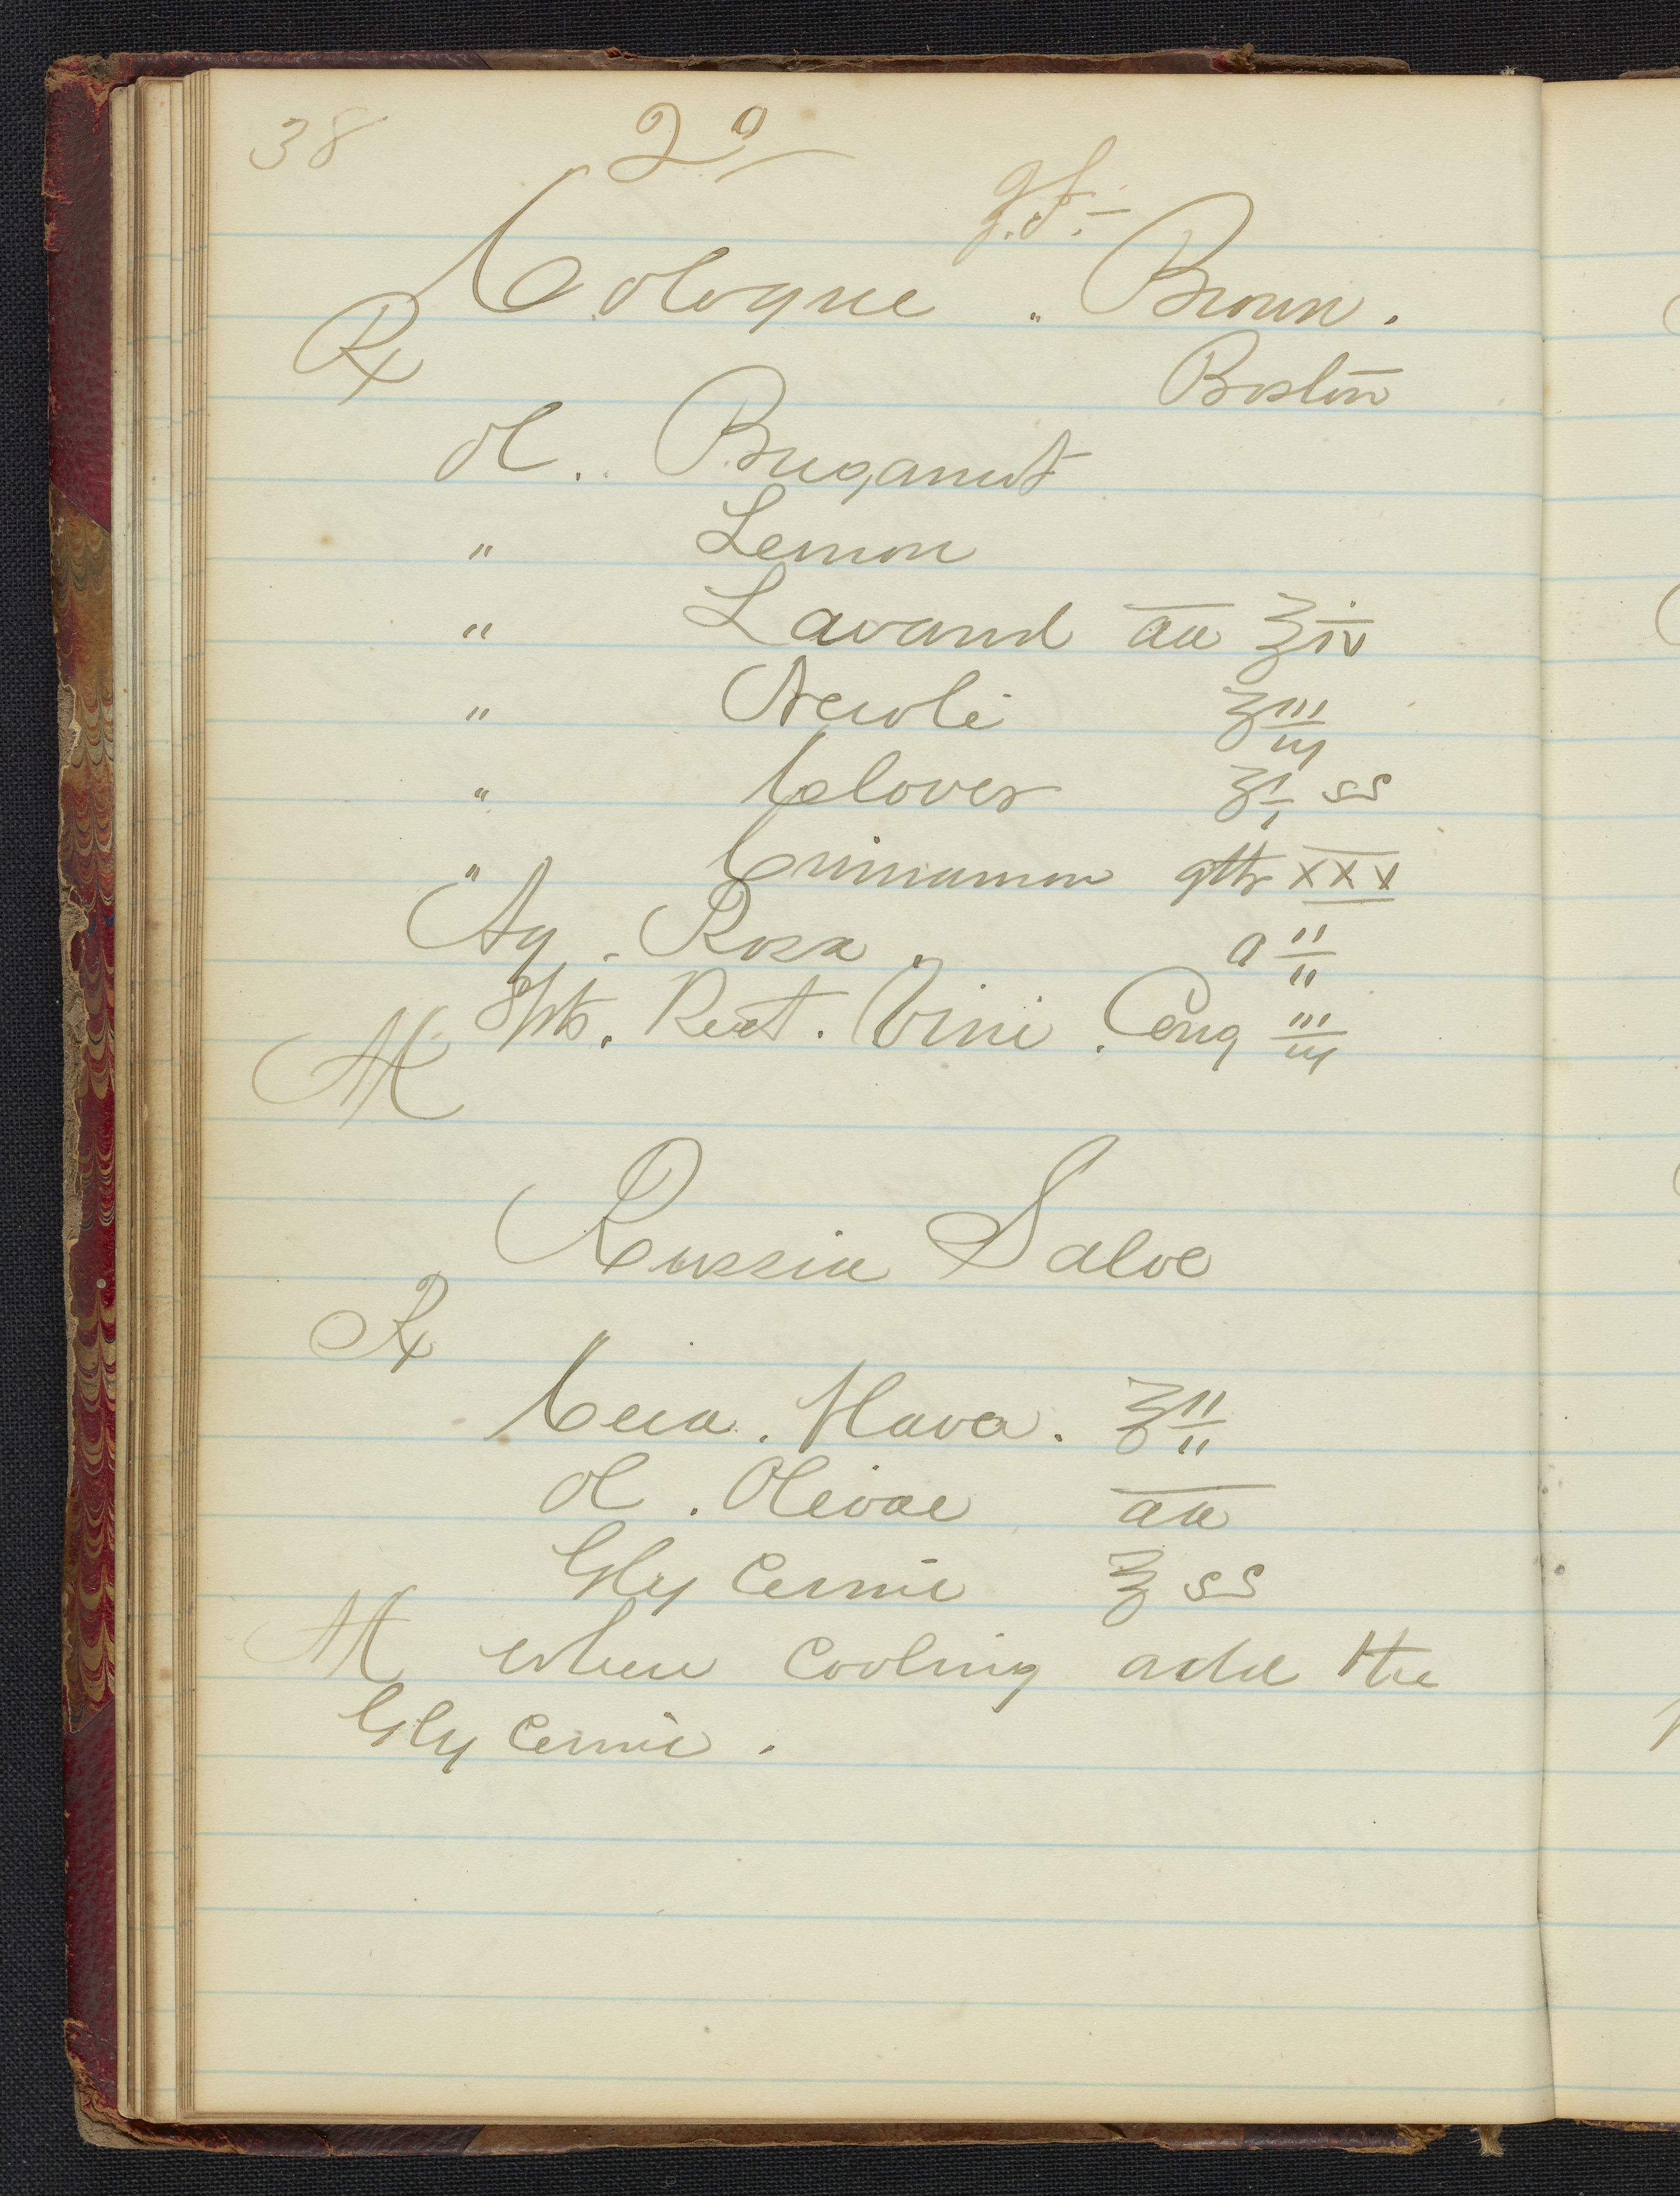 38
2º
J.F.
Cologne „ Brown.
Rx
Boston
Ol. Burgamot
" Lemon
" Lavand aa ʒiv
" Neroli ʒiij
" Cloves ʒi ss
" Cinnamon gtts xxv
Aq. Rosa. O ii
Spts. Rect. Vini. Cong iij
M
Russia Salve
Rx
Cera. Flava. ℥ii
Ol. Olivae aa
Glycerine ℥ss
M when cooling add the
Glycerine.